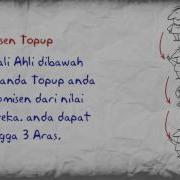 sen Topup
ali Ahli dibawah
anda Topup anda
omisen dari nilai
reka. anda dapat
gga 3 Aras.